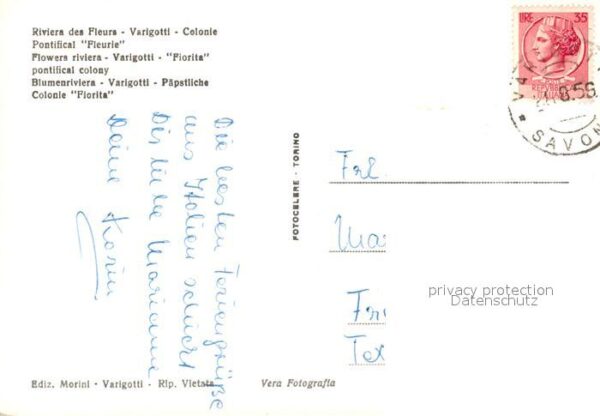 Riviera des Fleurs - Varigotti - Colonie
Pontifical "Fleurie"
Flowers riviera - Varigotti - "Fiorita"
pontifical colony
Blumenriviera - Varigotti - Päpstliche
Colonie "Fiorita"
LIRE 35
POSTE
REPVBBLICA
ITALIANA
SAVON
Die besten Feriengrüße
aus Italien schickt
Dir liebe Marianne
Deine Karin
FOTOCELERE - TORINO
Frl
Ma
Fri
Tex
privacy protection
Datenschutz
Ediz. Morini - Varigotti - Rip. Vietata
Vera Fotografia